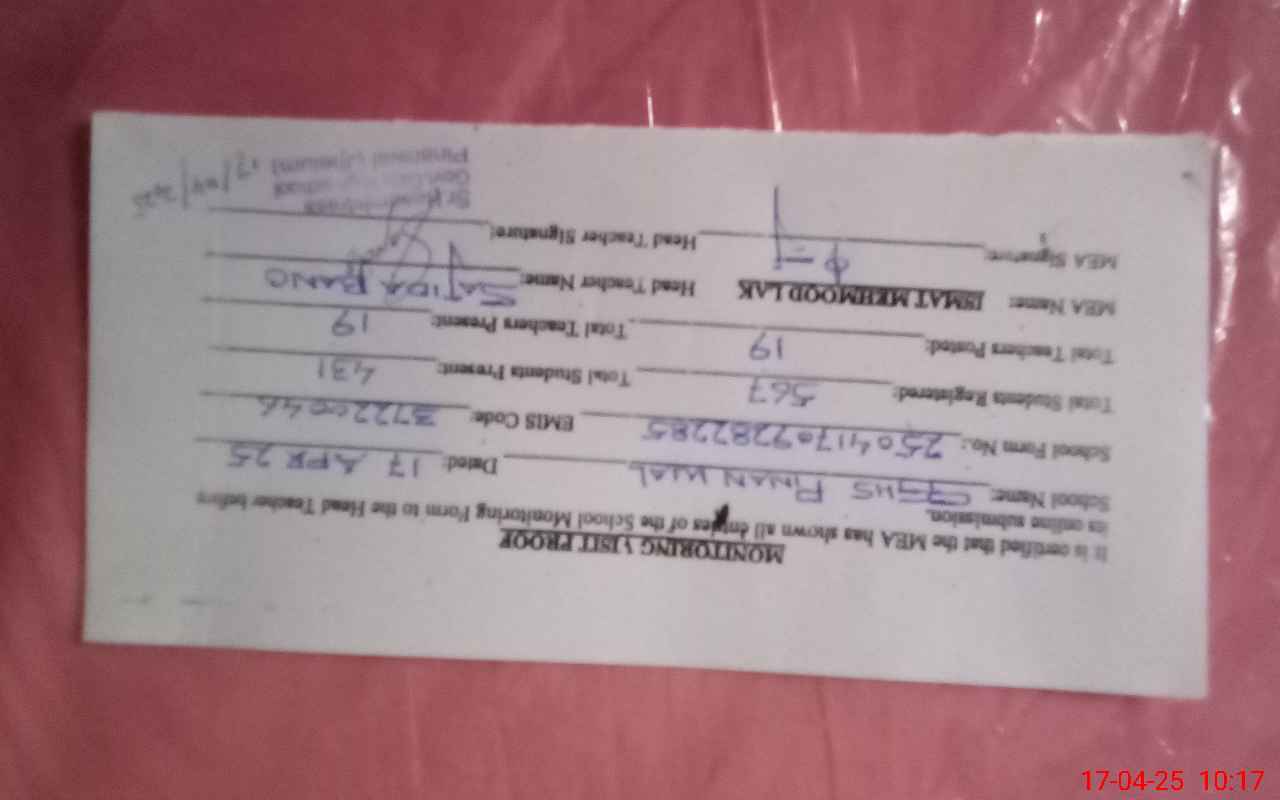 MONITORING VISIT PROOF
It is certified that the MEA has shown all entries of the School Monitoring Form to the Head Teacher before
its online submission.
School Name: GGHS PINANWAL Dated: 17 APR 25
School Form No.: 2504117092282285 EMIS Code: 37220046
Total Students Registered: 567 Total Students Present: 431
Total Teachers Posted: 19 Total Teachers Present: 19
MEA Name: ISMAT MEHMOOD LAK Head Teacher Name: SAJIDA BANO
MEA Signature: Head Teacher Signature:
17/04/2025
17-04-25 10:17